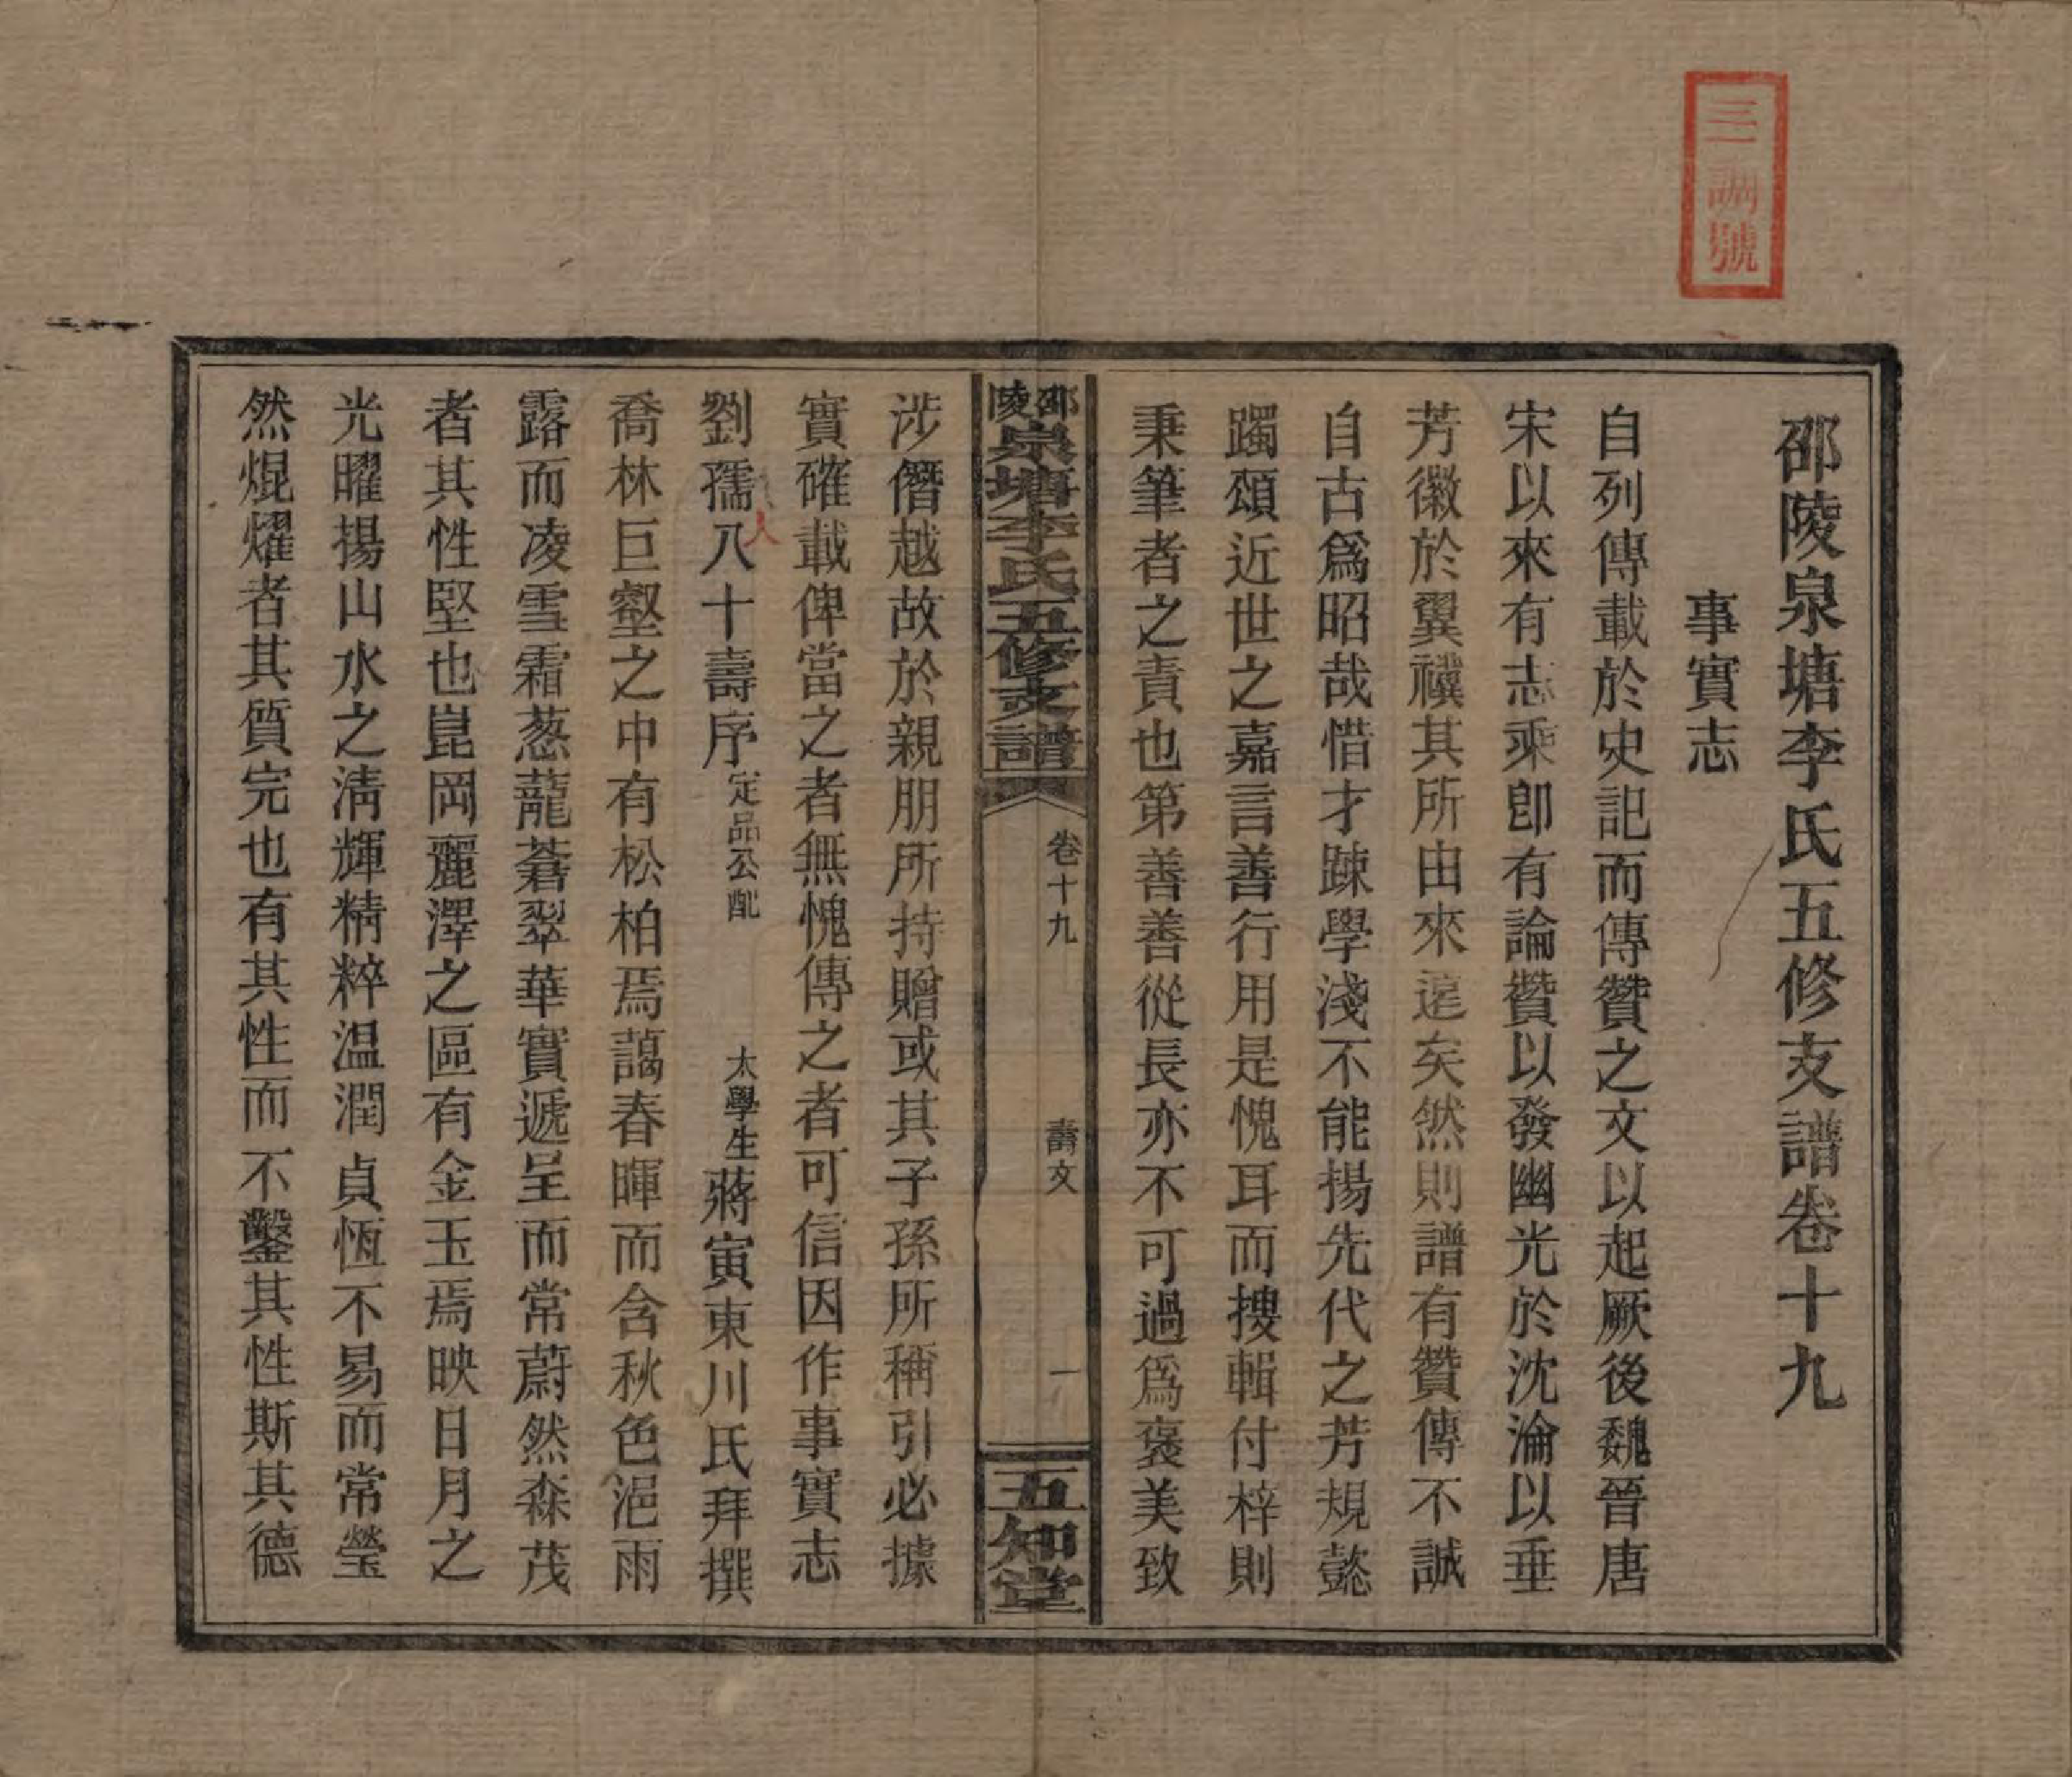 三調號
邵陵泉塘李氏五修支譜卷十九
事實志
自列傳載於史記而傳贊之文以起厥後魏晉唐
宋以來有志乘卽有論贊以發幽光於沈淪以垂
芳徽於翼禩其所由來遠矣然則譜有贊傳不誠
自古爲昭哉惜才踈學淺不能揚先代之芳規懿
躅頌近世之嘉言善行用是愧耳而搜輯付梓則
秉筆者之責也第善善從長亦不可過爲褒美致
邵陵泉塘李氏五修支譜
卷十九
壽文
一
五知堂
涉僭越故於親朋所持贈或其子孫所稱引必據
實確載俾當之者無愧傳之者可信因作事實志
劉孺人八十壽序定品公配 太學生蔣寅東川氏拜撰
喬林巨壑之中有松柏焉藹春暉而含秋色浥雨
露而凌雪霜葱蘢蒼翠華實遞呈而常蔚然森茂
者其性堅也崑岡麗澤之區有金玉焉映日月之
光曜揚山水之淸輝精粹温潤貞恆不易而常瑩
然焜燿者其質完也有其性而不鑿其性斯其德